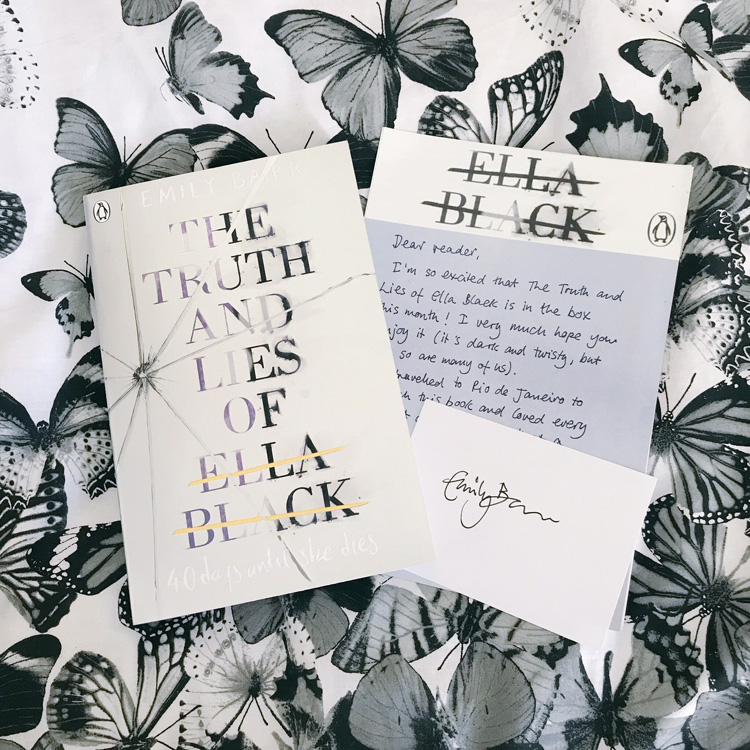 EMILY BARR
THE
TRUTH
AND
LIES
OF
ELLA
BLACK
40 days until she dies
ELLA
BLACK
Dear reader,
I'm so excited that The Truth and
Lies of Ella Black is in the box
this month! I very much hope you
enjoy it (it's dark and twisty, but
so are many of us).
travelled to Rio de Janeiro to
this book and loved every
Emily Barr